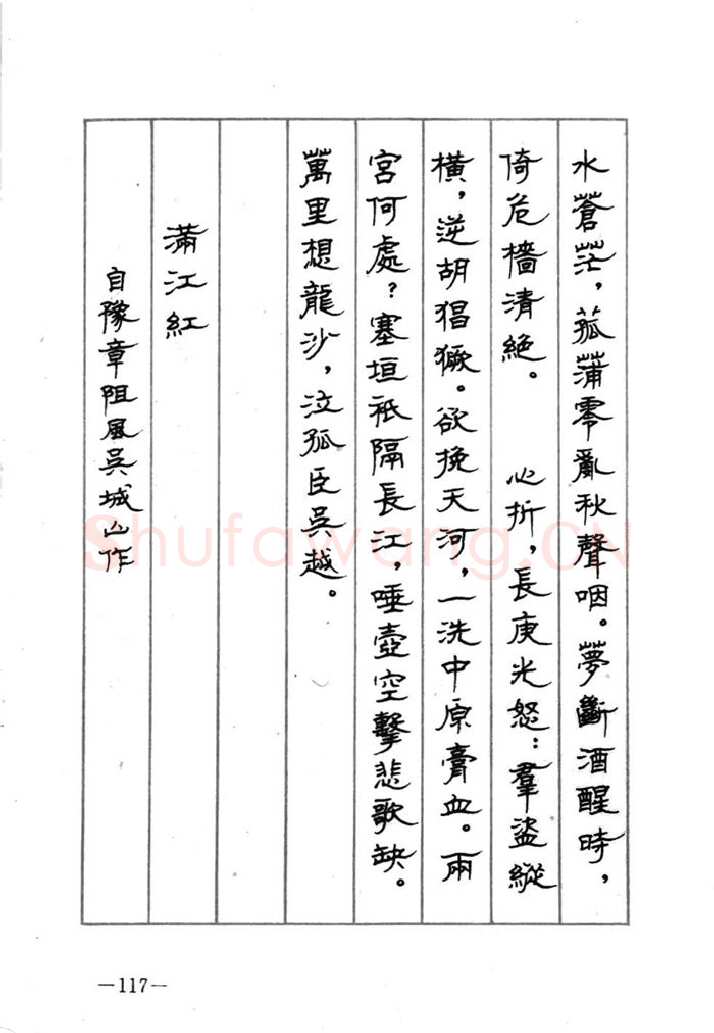 水蒼茫，菰蒲零亂秋聲咽。夢斷酒醒時，
倚危檣清絶。　心折，長庚光怒：羣盜縱
橫，逆胡猖獗。欲挽天河，一洗中原膏血。兩
宮何處？塞垣衹隔長江，唾壺空擊悲歌缺。
萬里想龍沙，泣孤臣吳越。
滿江紅
自豫章阻風吳城山作
Shufawang.CN
—117—